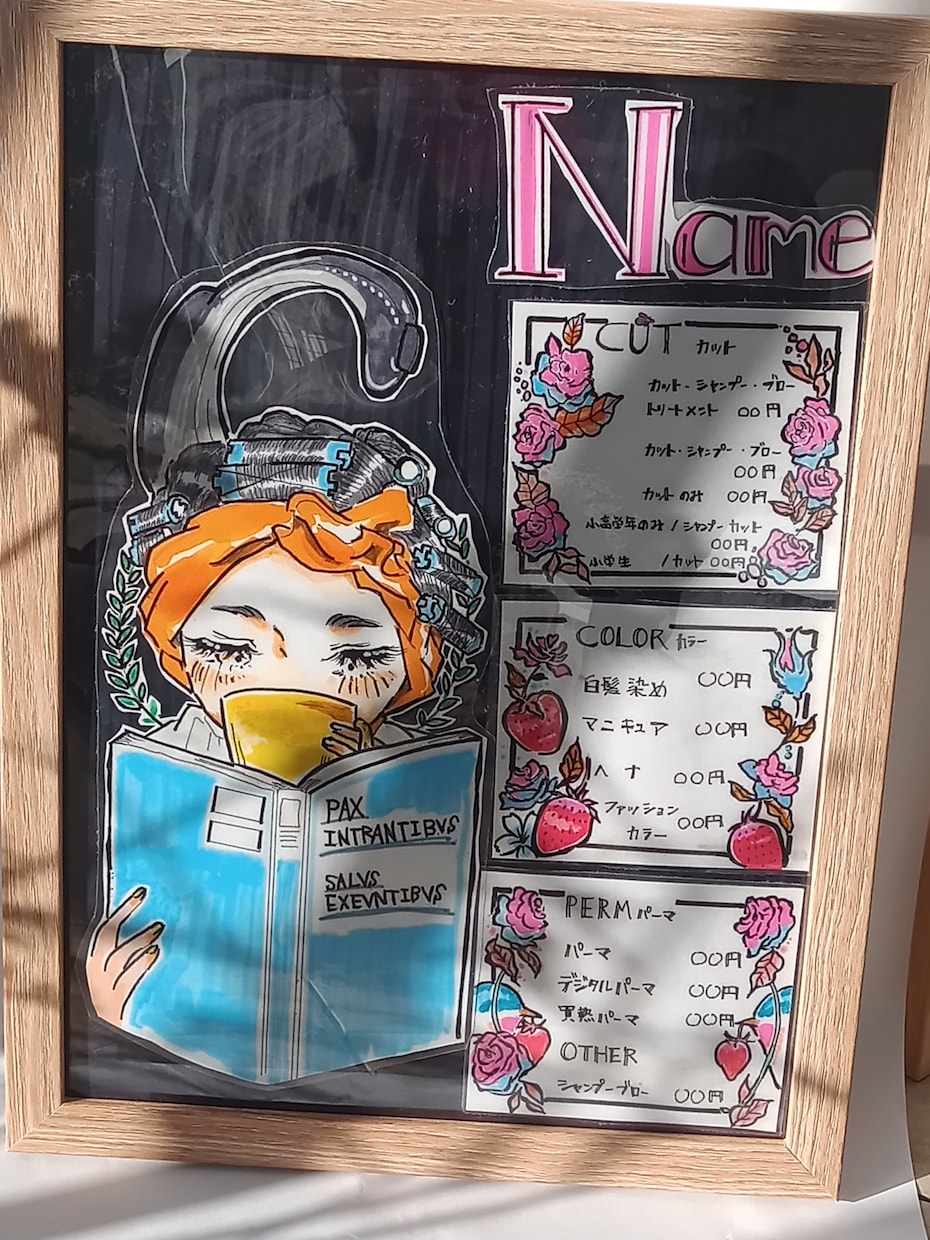 Name
CUT カット
カット・シャンプー・ブロー
トリートメント 〇〇円
カット・シャンプー・ブロー
〇〇円
カットのみ 〇〇円
小高学年のみ / シャンプーカット
〇〇円
小学生 / カット 〇〇円
COLOR カラー
白髪染め 〇〇円
マニキュア 〇〇円
ヘナ 〇〇円
ファッション
カラー 〇〇円
PERM パーマ
パーマ 〇〇円
デジタルパーマ 〇〇円
熱パーマ 〇〇円
OTHER
シャンプーブロー 〇〇円
PAX
INTRANTIBVS
SALVS
EXEVNTIBVS